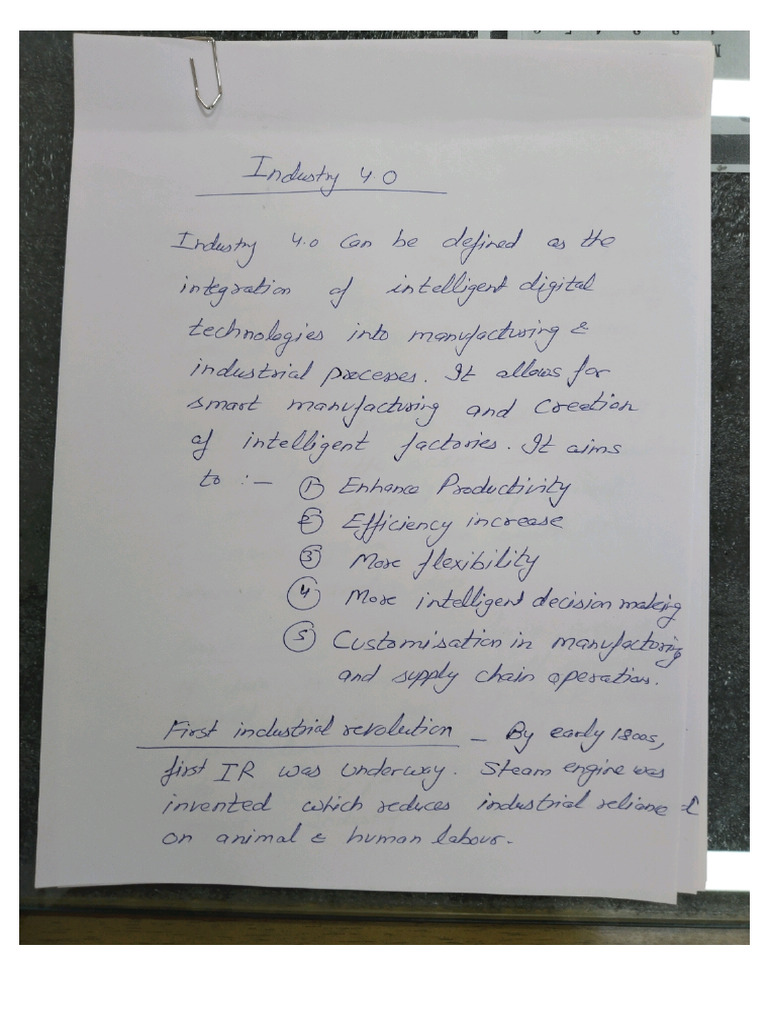 Industry 4.0
Industry 4.0 can be defined as the
integration of intelligent digital
technologies into manufacturing &
industrial processes. It allows for
smart manufacturing and creation
of intelligent factories. It aims
to :- ① Enhance Productivity
② Efficiency increase
③ More flexibility
④ More intelligent decision making
⑤ Customisation in manufacturing
and supply chain operation.
First industrial revolution - By early 1800s,
first IR was underway. Steam engine was
invented which reduces industrial reliance
on animal & human labour.